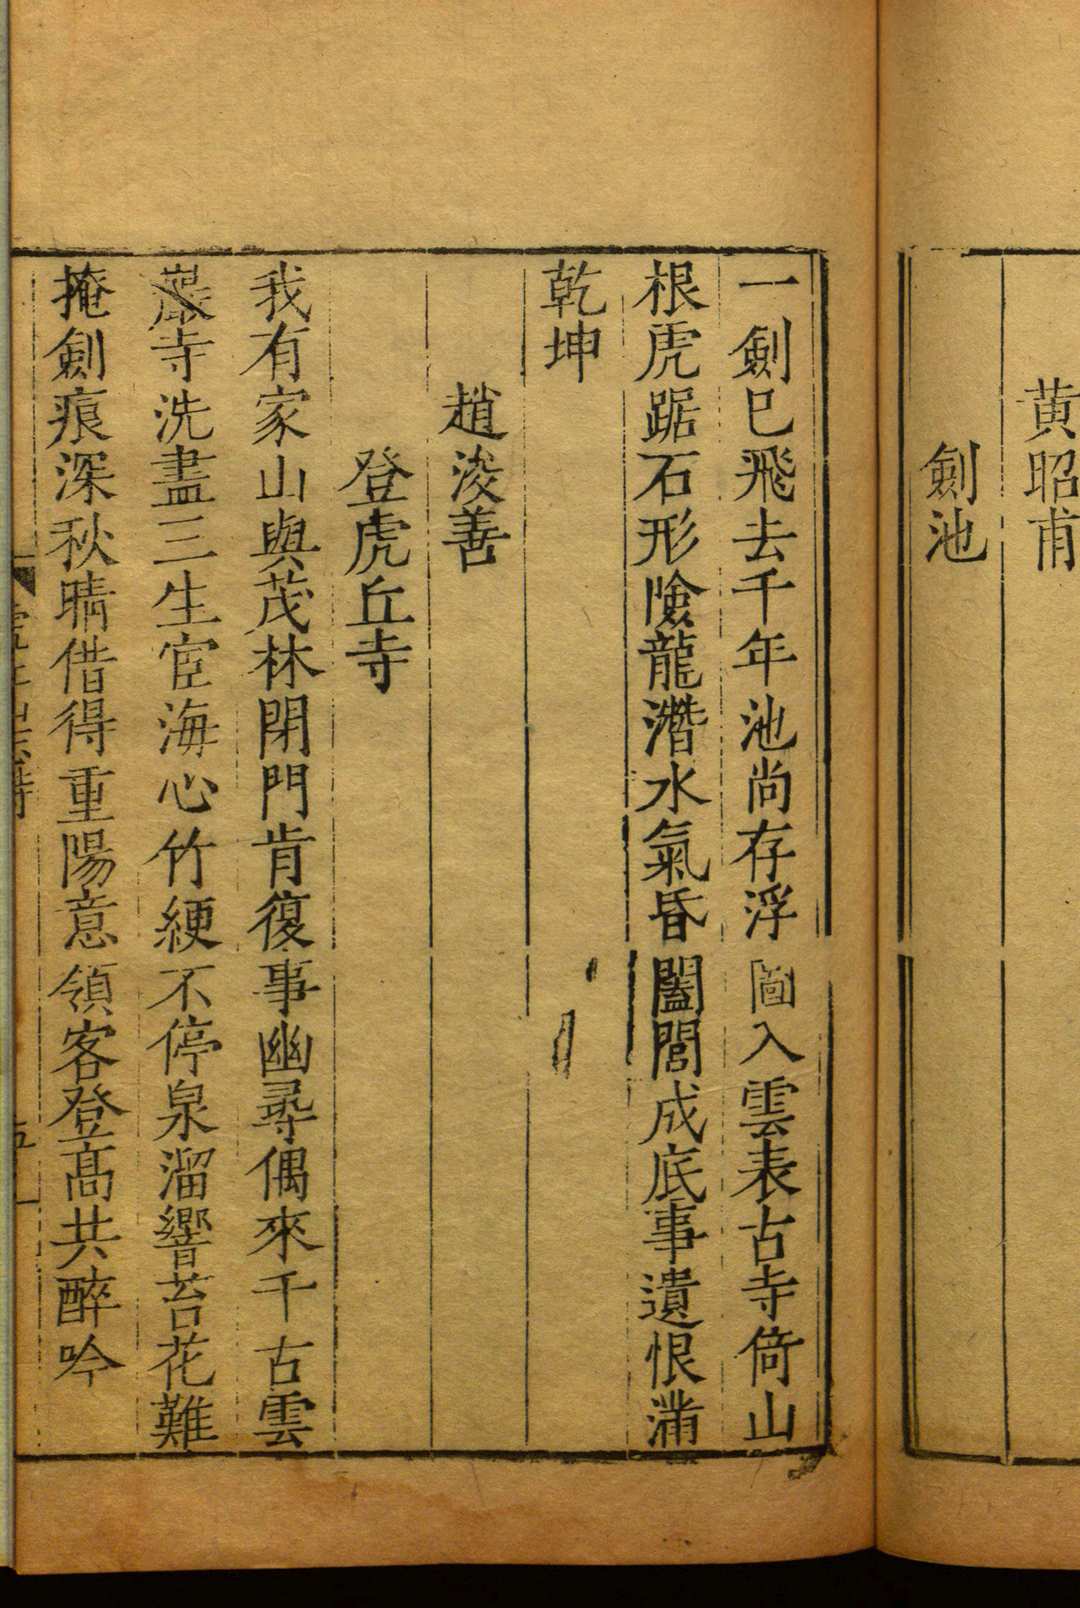 黄昭甫
劍池
一劍已飛去千年池尚存浮圖入雲表古寺倚山
根虎踞石形險龍潛水氣昏闔閭成底事遺恨滿
乾坤
趙浚善
登虎丘寺
我有家山與茂林閉門肯復事幽尋偶來千古雲
巖寺洗盡三生宦海心竹綆不停泉溜響苔花難
掩劍痕深秋晴借得重陽意領客登高共醉吟